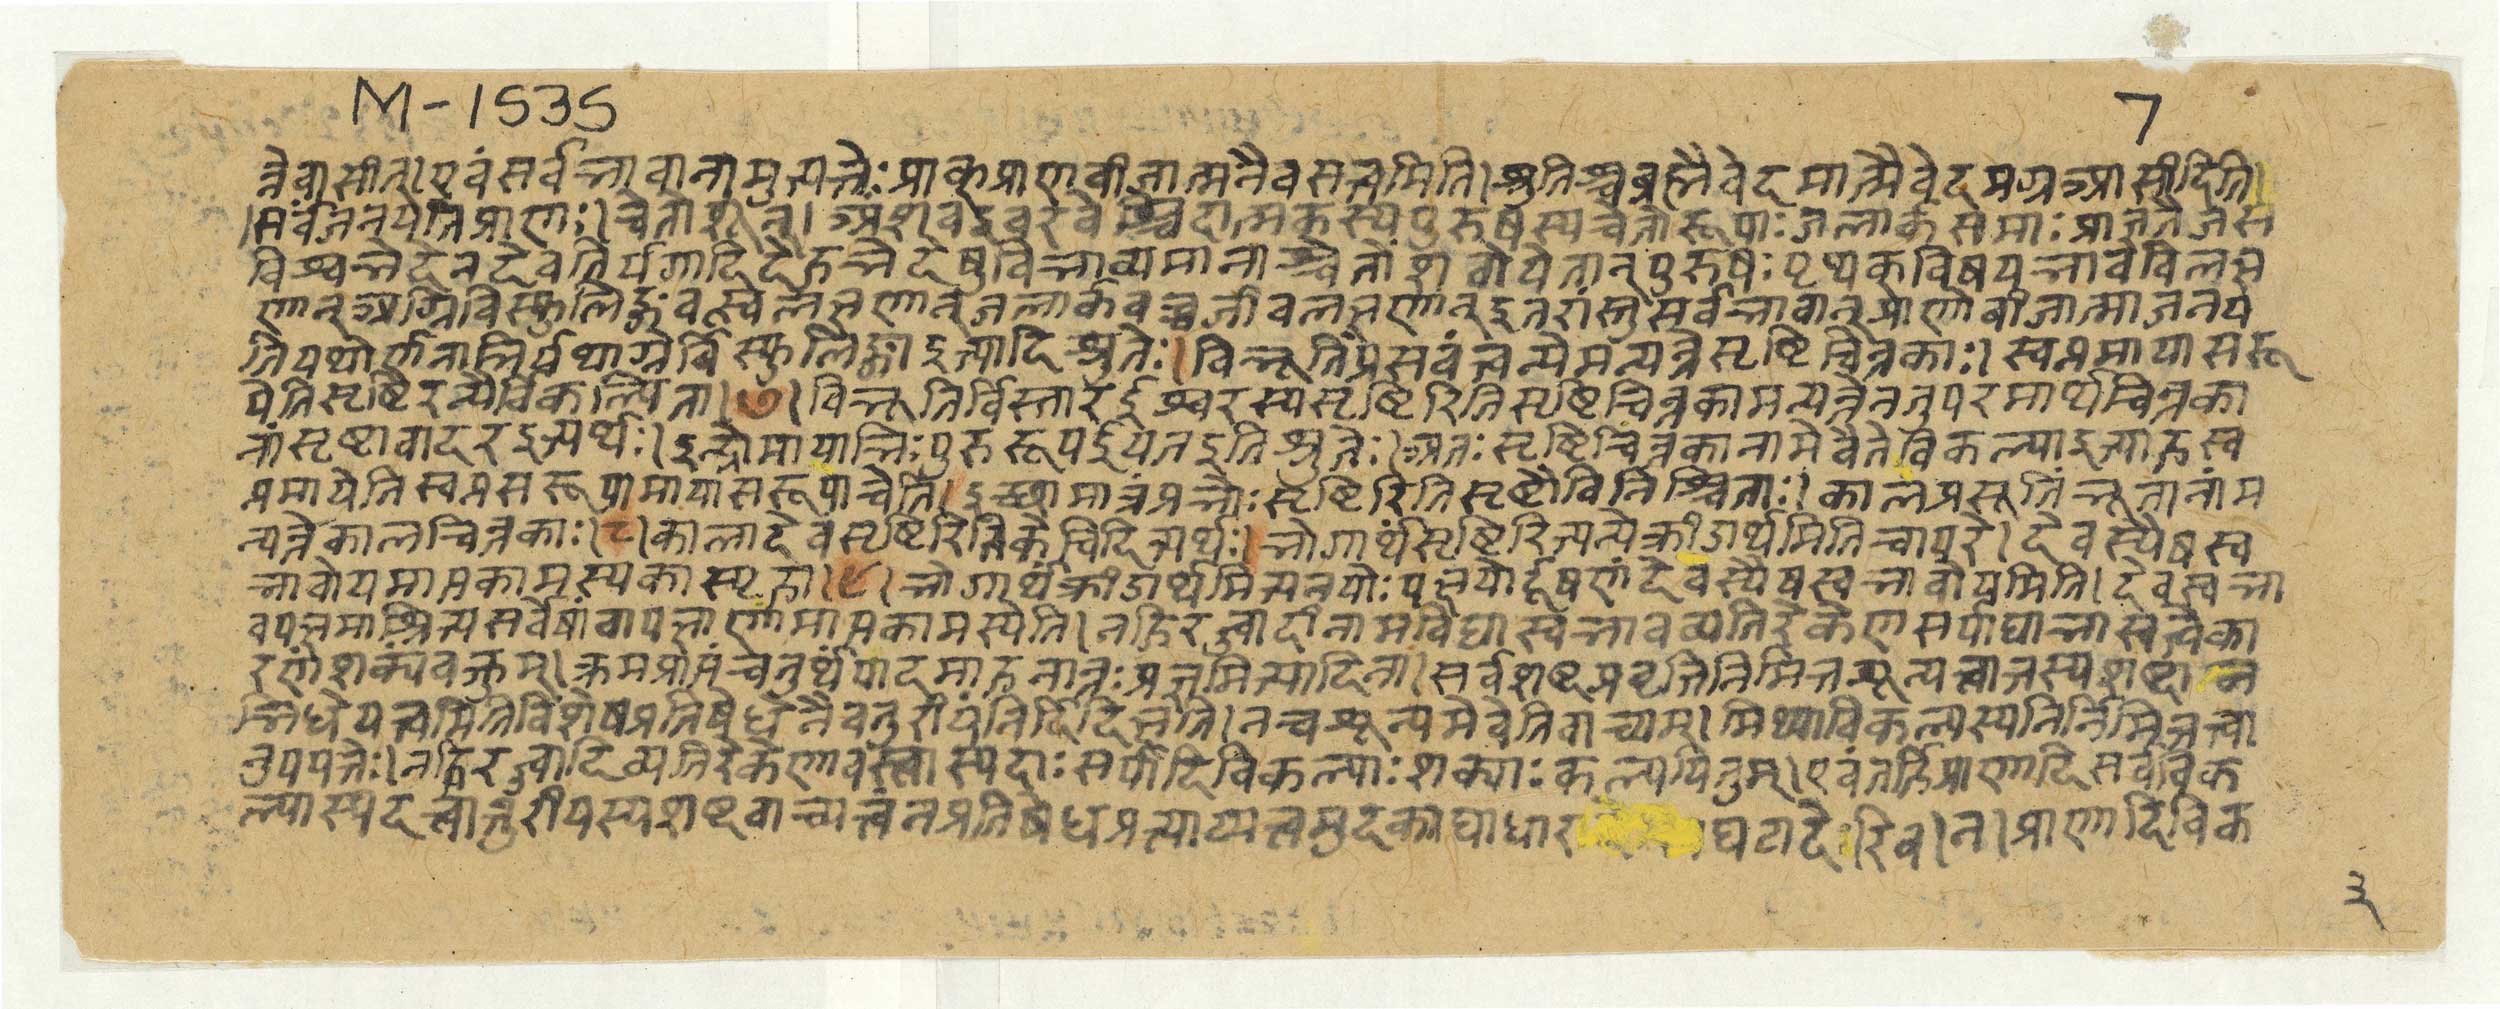 M-1535
7
न्नेवासीत्।एवंसर्वभावानामुत्पत्तेःप्राक्प्राणबीजात्मनैवसत्त्वमिति।श्रुतिश्चब्रह्मैवेदमात्मैवेदमग्रआसीदिति।
।सर्वंजनयतिप्राणः।चेतोंशून्।अंशवइवरवेश्चिदात्मकस्यपुरुषस्यचेतोरूपाःजलार्कसमाःप्राज्ञतैजस
विश्वभेदेनदेवतिर्यगादिदेहभेदेषुविभाव्यमानाश्चेतोंशवोयेतान्पुरुषःपृथक्विषयभावविलक्ष
णान्अग्निविस्फुलिङ्गवत्स्वलक्षणान्जलार्कवच्चजीवलक्षणान्इतरांस्तुसर्वभावान्प्राणोबीजात्माजनय
तियथोर्णनाभिर्यथाग्नेर्विस्फुलिङ्गाइत्यादिश्रुतेः।विभूतिंप्रसवंत्वन्येमन्यन्तेसृष्टिचिन्तकाः।स्वप्नमायासरू
पेतिसृष्टिरन्यैर्विकल्पिता।७।विभूतिर्विस्तारईश्वरस्यसृष्टिरितिसृष्टिचिन्तकामन्यन्तेनतुपरमार्थचिन्तका
नांसृष्टावादरइत्यर्थः।इन्द्रोमायाभिःपुरुरूपईयतइतिश्रुतेः।अतःसृष्टिचिंतकानामेवैतेविकल्पाइत्याहस्व
प्नमायेतिस्वप्नसरूपामायासरूपाचेति।इच्छामात्रंप्रभोःसृष्टिरितिसृष्टौविनिश्चिताः।कालप्रसूतिंभूतानांम
न्यन्तेकालचिन्तकाः।८।कालादेवसृष्टिरितिकेचिदित्यर्थः।भोगार्थंसृष्टिरित्यन्येक्रीडार्थमितिचापरे।देवस्यैषस्व
भावोयमाप्तकामस्यकास्पृहा।९।भोगार्थंक्रीडार्थमित्यनयोःपक्षयोर्दूषणंदेवस्यैषस्वभावोयमिति।देवस्वभा
वपक्षमाश्रित्यसर्वेषांवापक्षाणामाप्तकामस्येति।नहिरज्ज्वादीनामविद्यास्वभावव्यतिरेकेणसर्पाद्याभासत्वेका
रणंशक्यंवक्तुम्।क्रमप्राप्तंचतुर्थंपादमाहनान्तःप्रज्ञमित्यादिना।सर्वशब्दप्रवृत्तिनिमित्तशून्यत्वात्तस्यशब्दान
भिधेयत्वमितिविशेषप्रतिषेधेनैवतुरीयंनिर्दिदिक्षति।नचशून्यमेवेतिवाच्यम्।मिथ्याविकल्पस्यनिर्निमित्तत्वा
नुपपत्तेः।नहिरज्ज्वादिव्यतिरेकेणावस्त्वास्पदाःसर्पादिविकल्पाःशक्याःकल्पयितुम्।एवंतर्हिप्राणादिसर्वविक
ल्पास्पदत्वात्तुरीयस्यशब्दवाच्यत्वंनप्रतिषेधप्रत्याय्यत्वमुदकाद्याधारघटादेरिव।न।प्राणादिविक
३